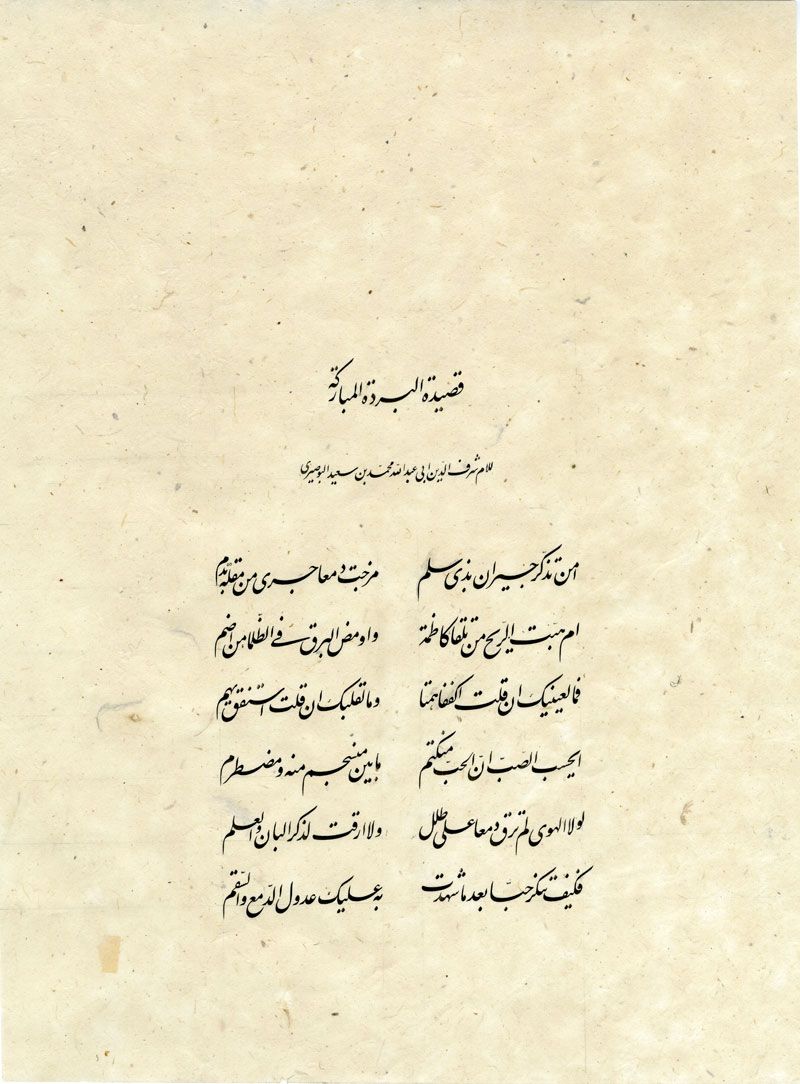 قصيدة البردة المباركة
للامام شرف الدين ابي عبدالله محمد بن سعيد البوصيري
امن تذكر جيران بذي سلم مزجت دمعا جرى من مقلة بدم
ام هبت الريح من تلقا كاظمة واومض البرق في الظلما من اضم
فما لعينيك ان قلت اكففا همتا وما لقلبك ان قلت استفق يهم
ايحسب الصب ان الحب منكتم ما بين منسجم منه ومضطرم
لولا الهوى لم ترق دمعا على طلل ولا ارقت لذكر البان والعلم
فكيف تنكر حبا بعد ما شهدت به عليك عدول الدمع والسقم